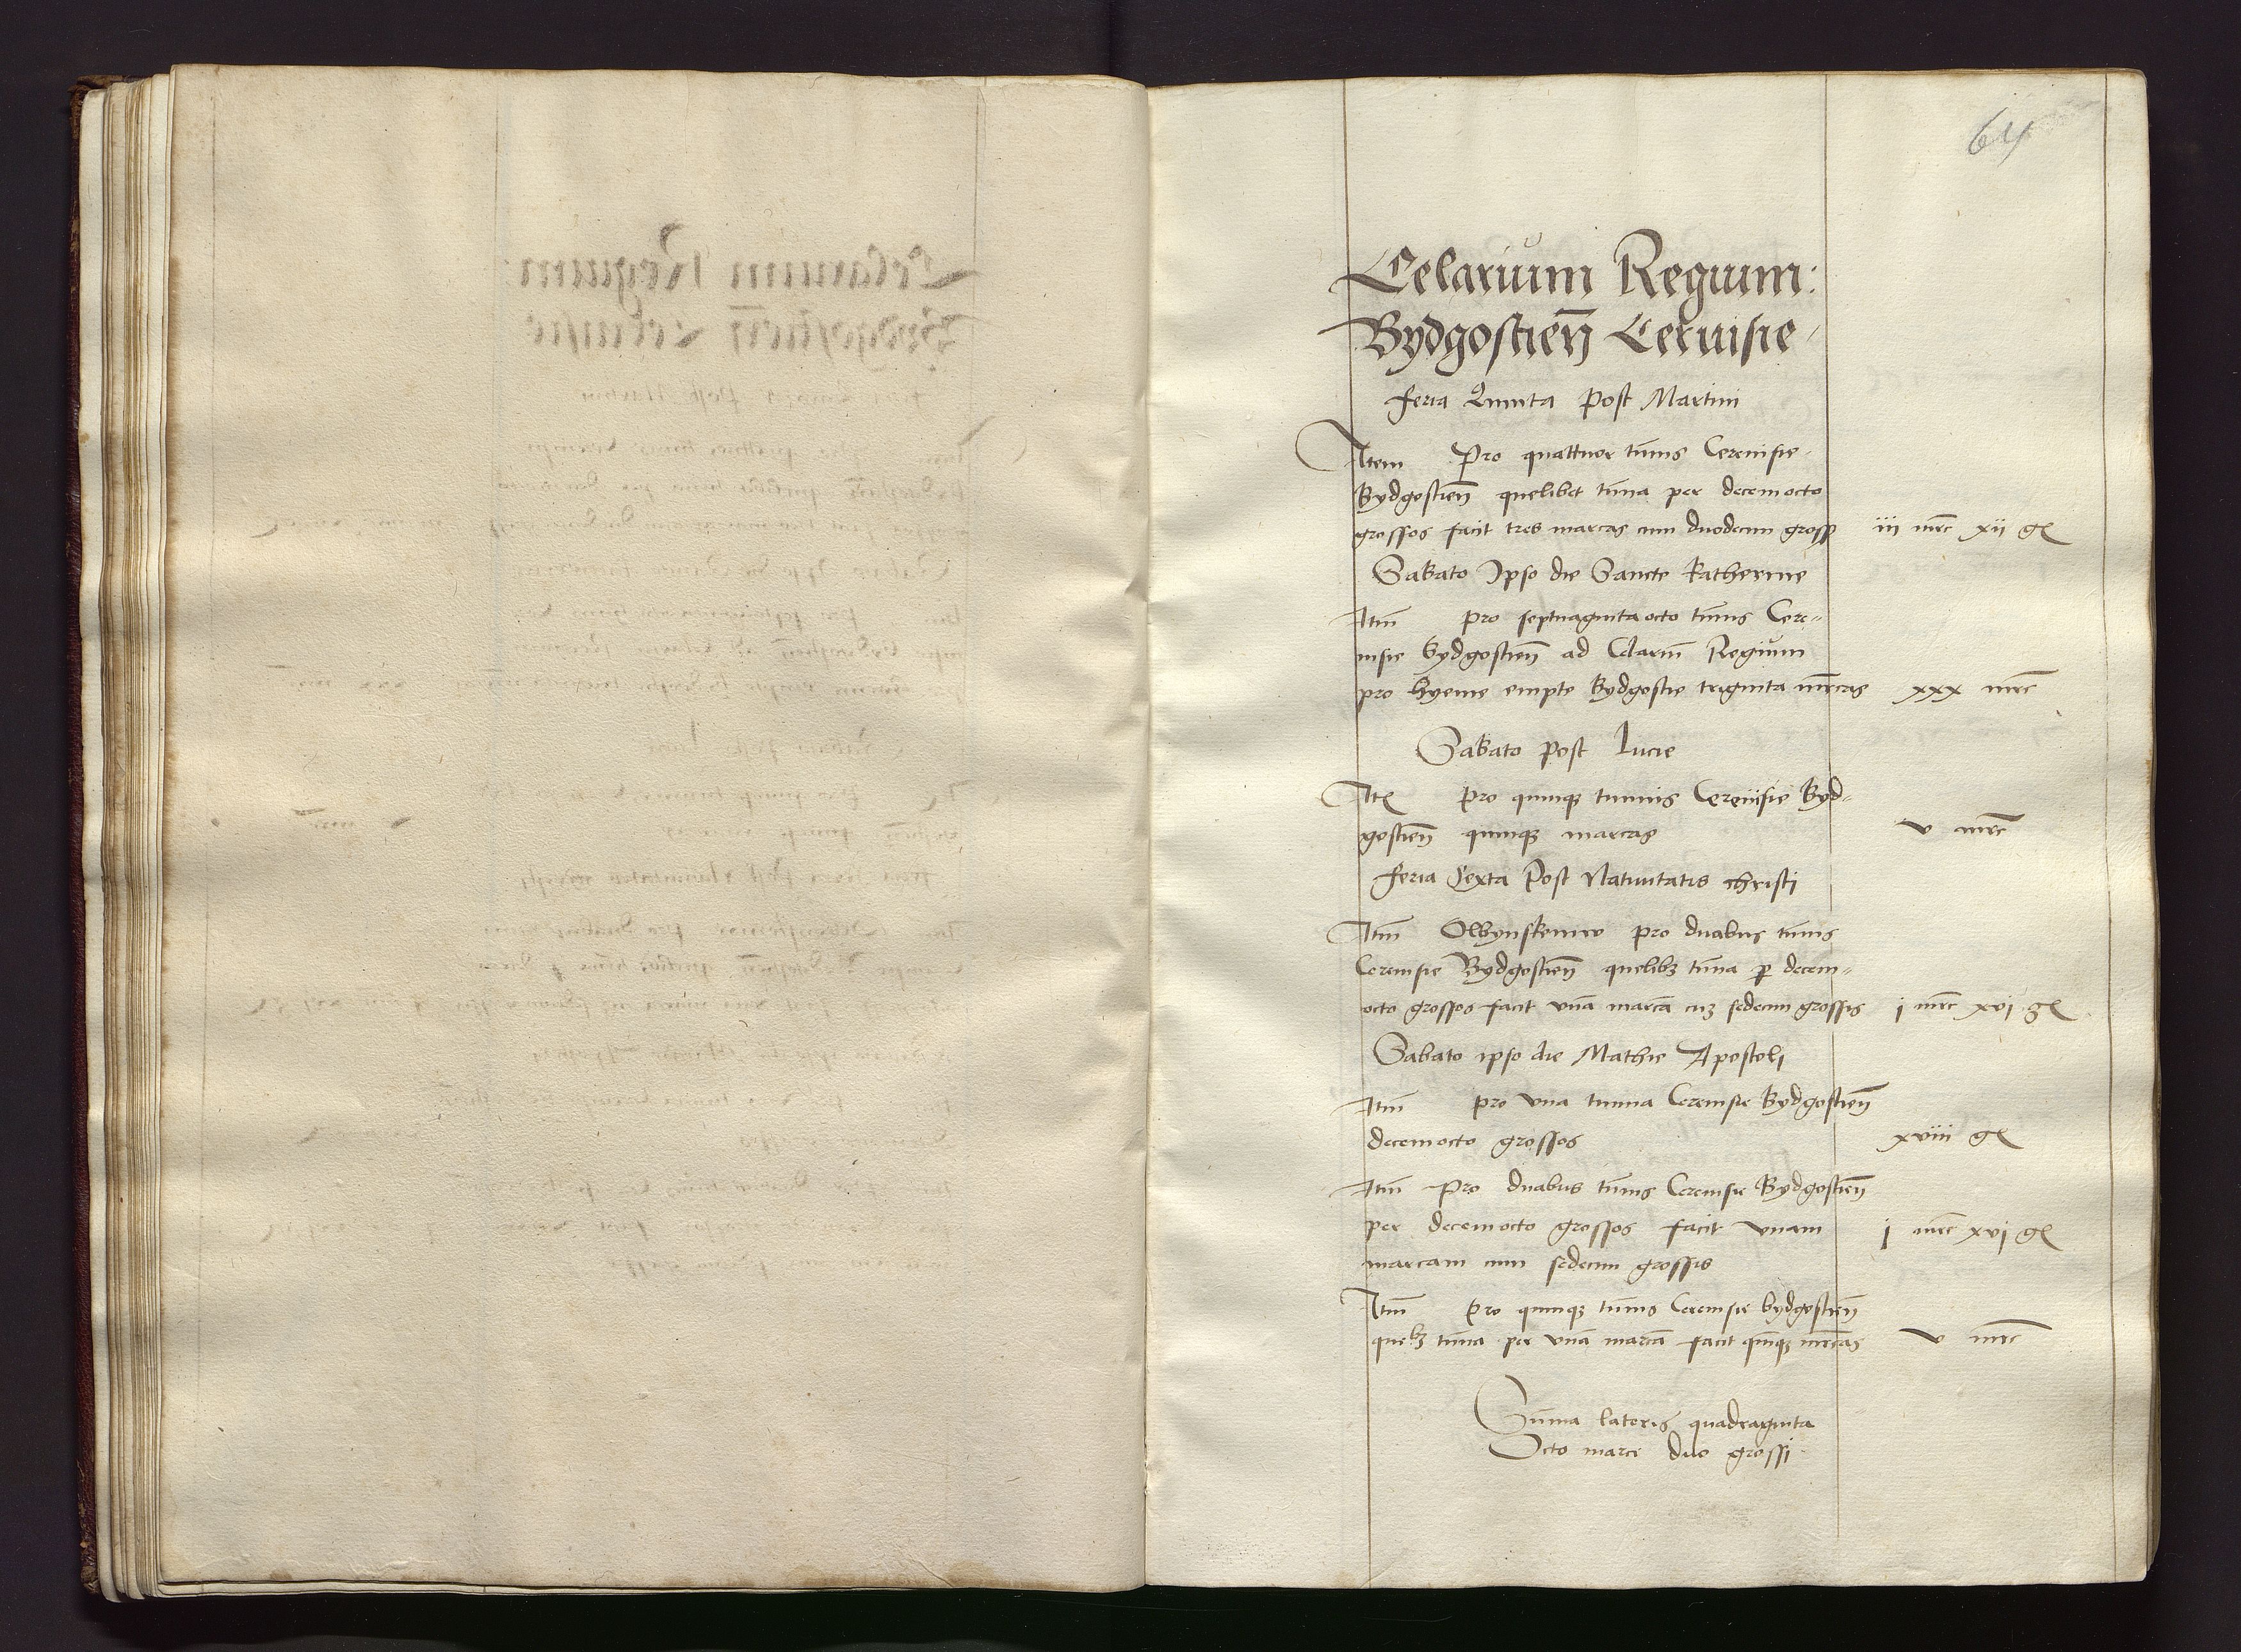 64
Celarium Regium:
Bydgostien̄ Ceruisie
feria Quinta Post Martini
Item Pro quattuor tūnis Cereuisie
Bydgostien̄ quelibet tūna per decemocto
grossos facit tres marcas cum duodecim gross
iii mrc xii gr
Sabato Ipso die Sancte Katherine
Itm̄ pro septuagintaocto tūnis Cere-
uisie bydgostien̄ ad Celariū Regium
pro hyeme empte Bydgostie triginta mr̄cas
xxx mrc
Sabato post Lucie
Ite pro quinqꝫ tunnis Cereuisie Byd-
gostien̄ quinqꝫ marcas
v mrc
feria Sexta Post Natiuitatis christi
Itm̄ Olbynskemw pro duabus tūnis
Cereuisie Bydgostien̄ quelibꝫ tūna ꝑ decem-
octo grossos facit vnā marcā cuꝫ sedecim grossis
i mrc xvi gr
Sabato ipso die Mathie Apostoli
Itm̄ pro vna tunna Cereuisie Bydgostien̄
decemocto grossos
xviii gr
Itm̄ Pro duabus tūnis Cereuisie Bydgostien̄
per decemocto grossos facit vnam
i mrc xvi gr
marcam cum sedecim grossis
Itm̄ Pro quinqꝫ tūnis Cereuisie bydgostien̄
quelꝫ tūna per vnā marcā facit quīqꝫ mr̄cas
v mrc
Sūma lateris quadraginta
Octo marce duo grossi